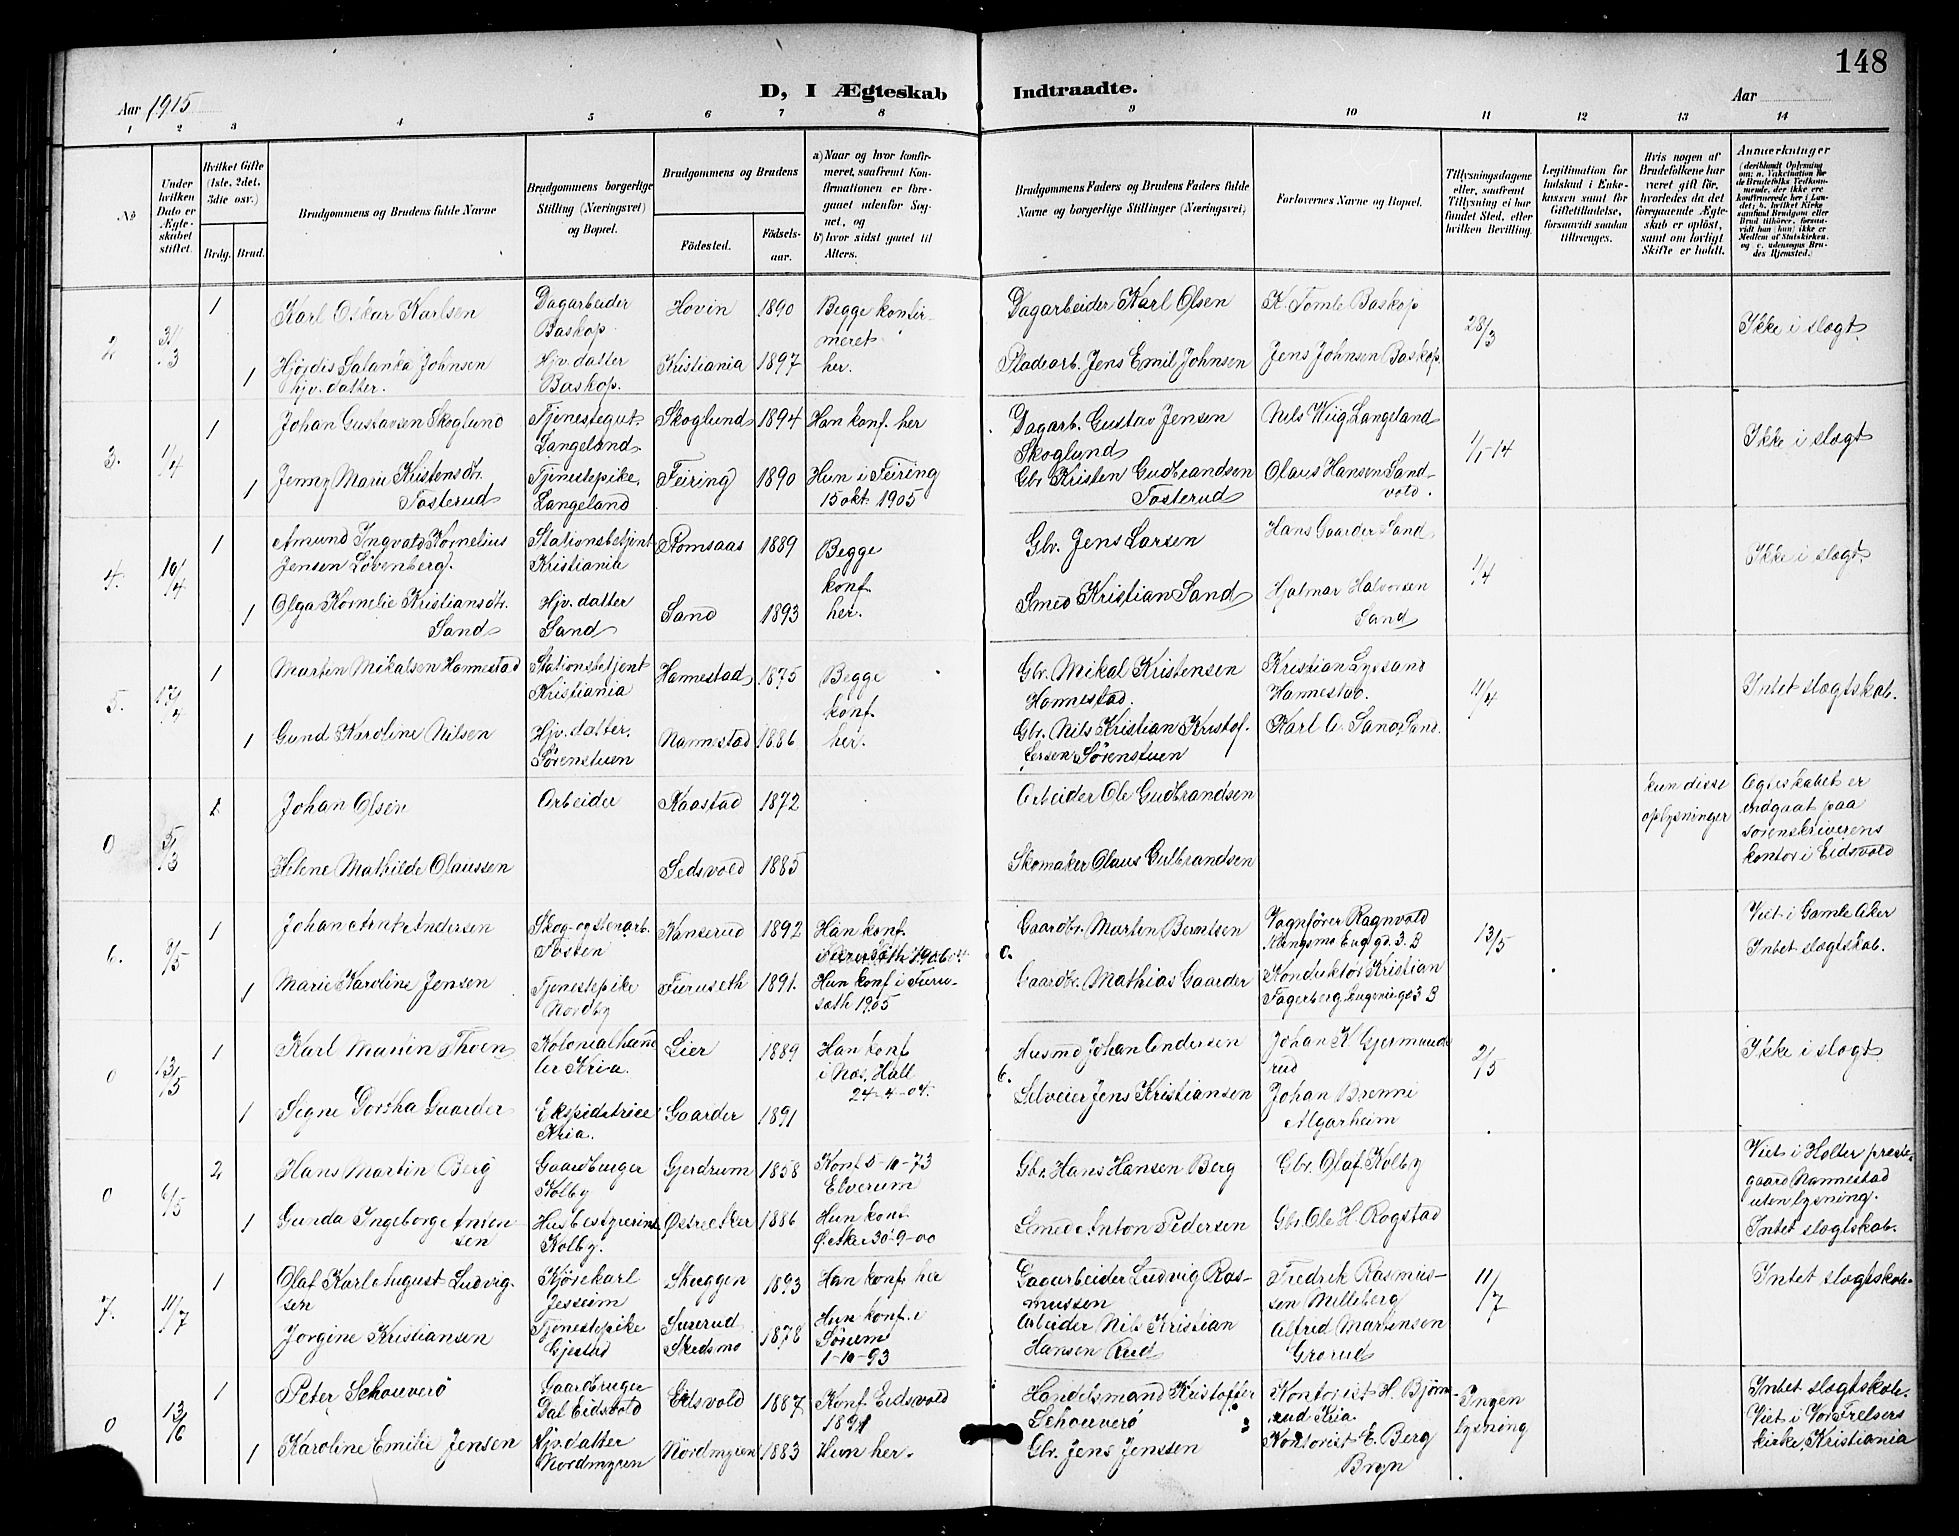 148
Aar 1915
D, I Ægteskab Indtraadte.
Aar
1 2 3 4 5 6 7 8 9 10 11 12 13 14
No
Under hvilken Dato er Ægteskabet stiftet.
Hvilket Gifte (1ste, 2det, 3die osv.)
Brdg. Brud.
Brudgommens og Brudens fulde Navne
Brudgommens borgerlige Stilling (Næringsvei) og Bopæl.
Brudgommens og Brudens
Fødested. Fødselsaar.
a) Naar og hvor konfirmeret, saafremt Konfirmationen er foregaaet udenfor Sognet, og
b) hvor sidst gaaet til Alters.
Brudgommens Faders og Brudens Faders fulde Navne og borgerlige Stillinger (Næringsvei)
Forlovernes Navne og Bopæl.
Tillysningsdagene eller, saafremt Tillysning ei har fundet Sted, efter hvilken Bevilling.
Legitimation for Indskud i Enkekassen samt for Giftetilladelse, forsaavidt saadan tiltrænges.
Hvis nogen af Brudefolkene har været gift før, hvorledes da det foregaaende Ægteskab er opløst, samt om lovligt Skifte er holdt.
Anmærkninger
2 31/3 1 Karl Oskar Karlsen Dagarbeider Baskop Hovin 1890 Begge konfirmeret her. Dagarbeider Karl Olsen K. Tomle Baskop 28/3 Ikke i slægt
1 Johnsen hjv. datter. Hjv. datter Baskop. Kristiania 1897 Jens Emil Johnsen Jens Johnsen Baskop.
3. 1/4 1 Johan Gustavsen Skoglund Tjenestegut Langeland Skoglund 1894 Han konf. her Dagarb. Gustav Jensen Skoglund Nils Wiig Langeland Ikke i slægt
1 Jenny Marie Kristensdtr. Tosterud Tjenestepike Langeland Feiring 1890 Hun i Feiring 15 okt. 1905 Gbr. Kristen Gudbrandsen Tosterud Olaus Hansen Sandvold.
4. 10/4 1 Amund Ingvald Kornelius Jensen Løvenberg. Stationsbetjent Kristiania Romsaas 1889 Begge konf. her. Gbr. Jens Larsen Hans Gaarder Sand 1/4 Ikke i slægt
1 Olga Kornelie Kristiansdtr. Sand Hjv. datter Sand Sand 1893 Smed Kristian Sand Hjalmar Halvorsen Sand
5. 17/4 1 Martin Mikalsen Hannestad Stationsbetjent Kristiania Hannestad 1875 Begge konf. her. Gbr. Mikal Kristensen Hannestad. Kristian Lyssand Hannestad. 11/4 Intet slægtskab.
1 Gund Karoline Nilsen Hjv. datter. Sörenstuen Nannestad 1886 Gbr. Nils Kristian Kristofersen Sörenstuen Karl A. Sand, Sand.
0 5/3 Johan Olsen Arbeider Kaastad 1872 Arbeider Ole Gudbrandsen kun disse oplysninger Egteskabet er indgaat paa sorenskriverens kontor i Eidsvold
Helene Mathilde Olaussen 1885 Skomaker Olaus Gulbrandsen
6. 9/5 1 Johan Andersen Skog- og stenarb. Tosten 1892 Han konf. Gaardbr. Martin Berntsen Vognfører Ragnvald 13/5 Viet i Gamle Aker Intet slægtskab.
1 Marie Karoline Jensen Tjenestepike Nordby Furuseth 1891. Hun konf. i Furuseth 1905 Gaardbr. Mathias Gaarder Konduktør Kristian Fagerberg
0 13/5 1 Karl Martin Thoen Kria. Lier 1889 Han konf. i Nos. Hall 24-4-04. Husmd Johan Andersen Johan K. Gjermundrud 2/5 Ikke i slægt
1 Signe Dorthea Gaarder Ekspeditrice Kria. Gaarder 1891 Selveier Jens Kristiansen Johan Brenni Algarheim
0 6/5 2 Hans Martin Berg Gaardbruger Kolby Gjerdrum 1858 Konf 5-10-73 Elverum Gbr. Hans Hansen Berg Gbr. Olaf Kolby Viet i Holter prestegaard Nannestad uten lysning. Intet slægtskab.
1 Gunda Ingeborge Antonsen Husbestyrerinde Kolby. Østre Aker 1886 Hun konf. Ø. Aker 30-9-00 Smed Anton Pedersen Gbr. Ole H. Rogstad
7. 11/7 1 Olaf Karl August Ludvigsen Kjørekarl Jessum Skyggen 1893 Han konf. her Dagarbeider Ludvig Rasmussen Fredrik Rasmussen Milleberg 11/7 Intet slægtskab.
Jorgine Kristiansen Tjenestepike Skedsmo 1878 Hun konf. i Sørum 1-10-93 Arbeider Nils Kristian Hansen Rud Alfred Martinsen Grorud
0 13/6 1 Peter Schouverö Gaardbruger Dal Eidsvold Eidsvold 1887 Konf. Eidsvold Handelsmand Kristoffer Schouverö Kontorist H. Bjørnrud Kria Ingen lysning Intet slægtskab. Viet i Vor Frelsers kirke, Kristiania
1 Karoline Emilie Jensen Hjv. datter Nordmyren Nordmyren 1883 Hun her. Gbr. Jens Jenssen Kontorist E. Berg Bryn